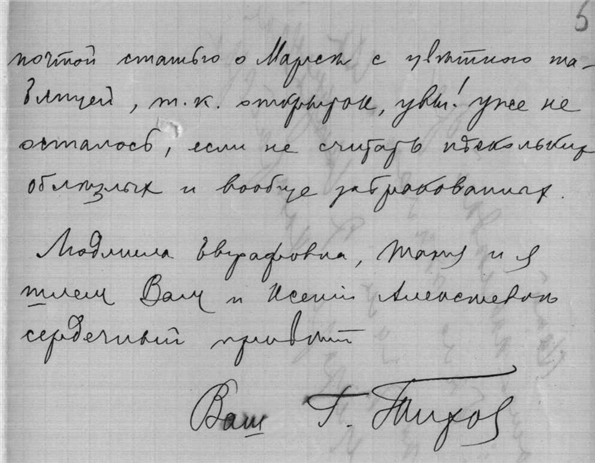 5
почтой статью о Марсе с цветною та-
блицей, т.к. открыток, увы! уже не
осталось, если не считать нескольких
облезлых и вообще забракованных.
Людмила Евграфовна, Таня и я
шлем Вам и Ксении Алексеевне
сердечный привет
Ваш Г. Тихов